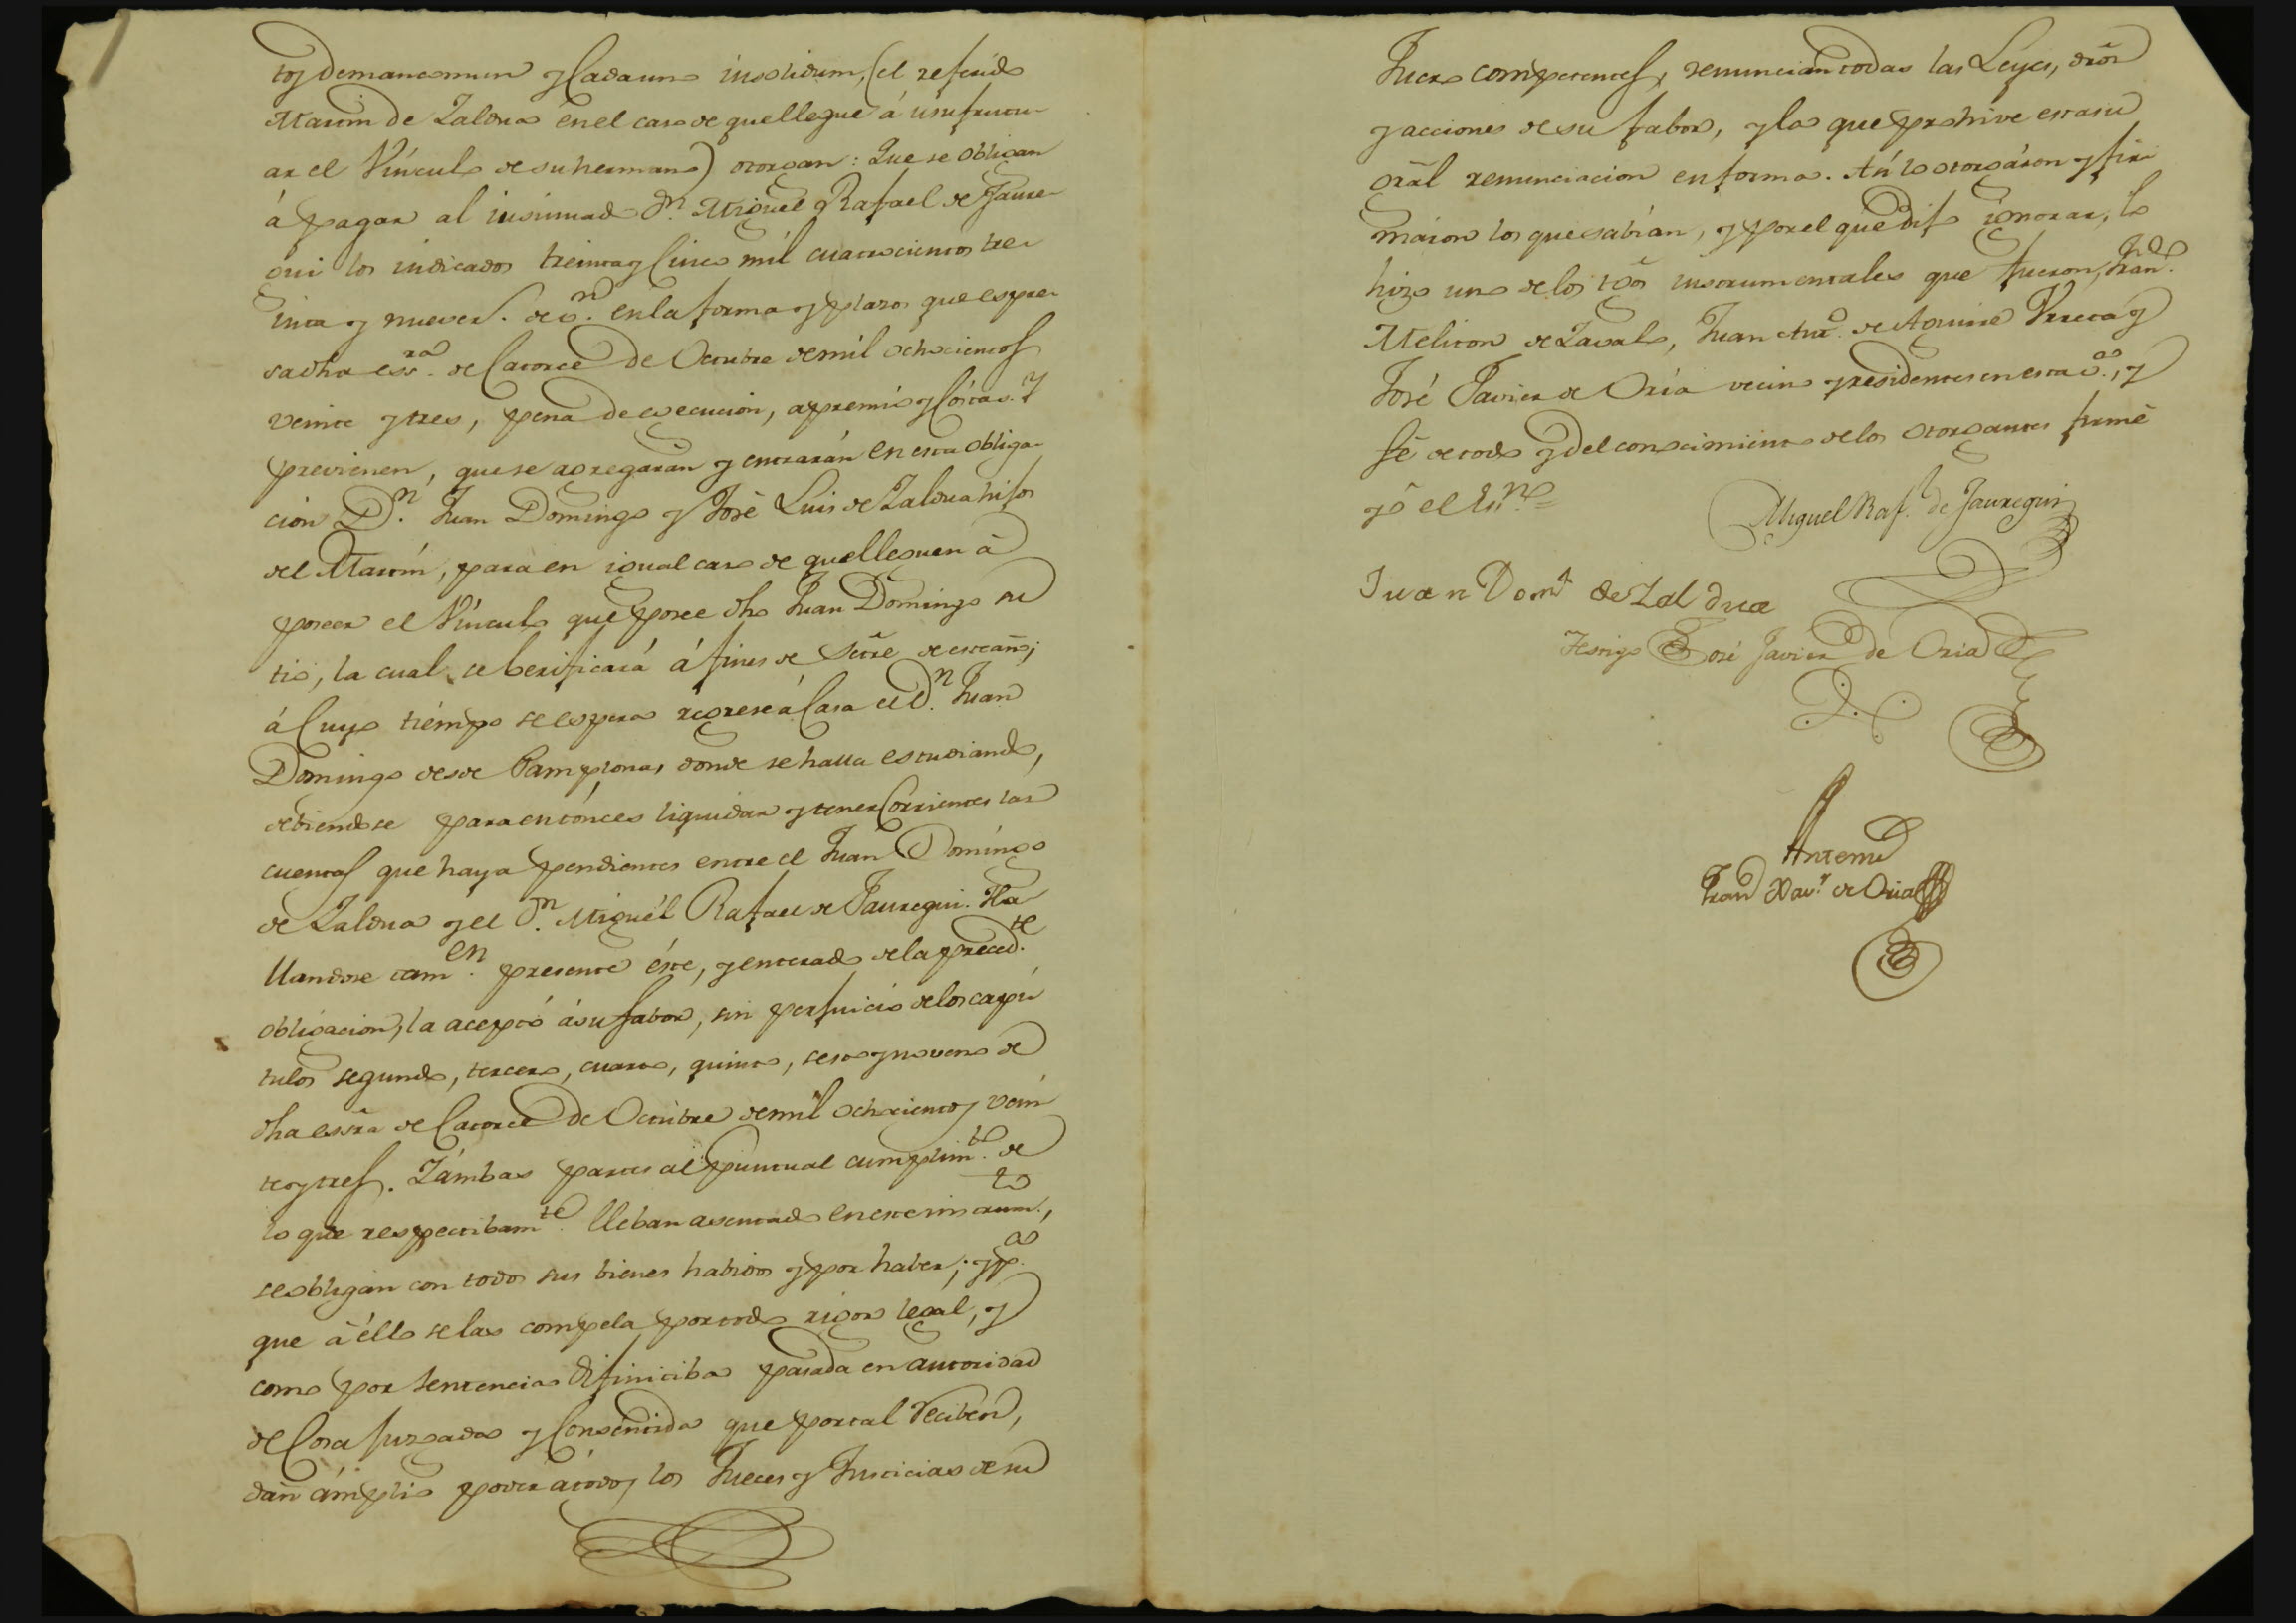 tos demancomun y Cada uno insolidum, (el referido
Martin de Zaldua en el caso de que llegue á usufructu-
ar el Vínculo de su hermano) otorgan: Que se obligan
á pagar al insinuado Dn. Miguel Rafael de Jaure-
gui los indicados treinta y Cinco mil cuatrocientos tre-
inta y nueve r. de vn. en la forma y plazos que espre-
sa dha essra. de Catorce de Octubre de mil ochocientos
veinte y tres, pena de execucion, apremio y Cóstas: Y
previenen, que se agregaran y entrarán en esta obliga-
cion Dn. Juan Domingo y José Luis de Zaldua hijos
del Martin, para en igual caso de que lleguen á
poseer el Vínculo que posee dho Juan Domingo su
tio, la cual se berificará á fines de Setre de este año;
á Cuyo tiempo se espera regrese á Casa el Dn. Juan
Domingo desde Pamplona, donde se halla estudiando,
debiendose para entónces liquidar y tener Corrientes las
cuentas que haya pendientes entre el Juan Domingo
de Zaldua y el Dn. Miguél Rafael de Jauregui. Ha-
llandose tamen. presente éste, y enterado de la preced.te
obligacion, la aceptó á su fabor, sin perjuicio de los capi
tulos segundo, tercero, cuarto, quinto, sesto y noveno de
dha essra de Catorce de Octubre de mil ochocientos vein
te y tres. Y ámbas partes al puntual cumplim.to de
lo que respectibam.te lleban asentado en este instrum.to,
se obligan con todos sus bienes habidos y por haber; y p.a
que á éllo se las compela por todo rigor legal, y
como por sentencia difinitiba pasada en autoridad
de Cosa juzgada y Consentida que por tal reciben,
dan ámplio poder á todos los Jueces y Justicias de su
Fuero competentes, renuncian todas las Leyes, dros
y acciones de su fabor, y la que prohive esta su
gral renunciacion en forma. Así lo otorgáron y fir-
maron los que sabían, y por el que dijo ignorar, lo
hizo uno de los tgos instrumentales que fueron, Fran.do
Meliton de Zavalo, Juan Anto. de Aguirre Urreta y
José Javier de Oria vecino y residentes en esta va., y
fé de todo y del conocimiento de los otorgantes firmé
yo el Ess.no =
Miguel Raf. de Jauregui
Juan Domo de Zaldua
Testigo José Javier de Oria
Antemi
Fran.co Xav.r de Oria